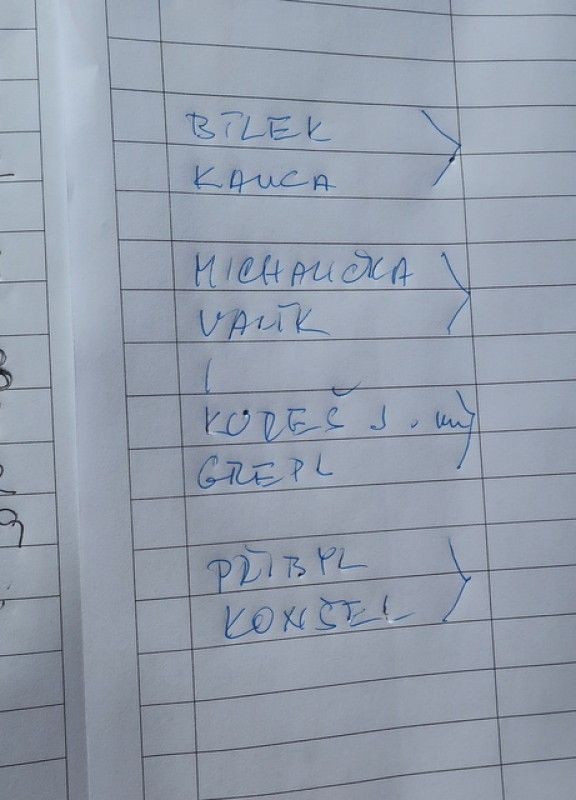 BÍLEK
KAUCA
MICHALIČKA
VALÍK
KODEŠ J. ml
GREPL
PŘIBYL
KONŠEL